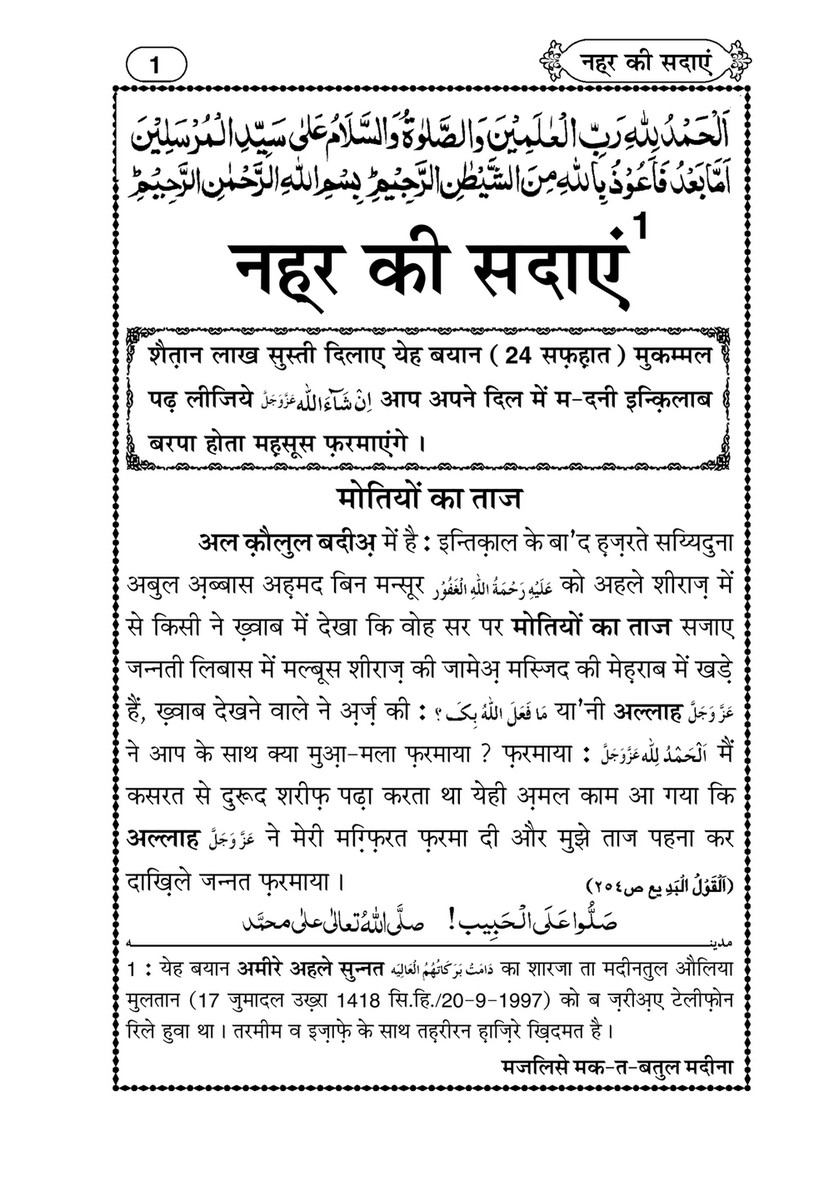 1
नह्र की सदाएं
اَلْحَمْدُ لِلّٰهِ رَبِّ الْعٰلَمِیْنَ وَالصَّلٰوةُ وَالسَّلَامُ عَلٰی سَیِّدِ الْمُرْسَلِیْنَ
اَمَّا بَعْدُ فَاَعُوْذُ بِاللّٰهِ مِنَ الشَّیْطٰنِ الرَّجِیْمِ ؕ بِسْمِ اللّٰهِ الرَّحْمٰنِ الرَّحِیْمِ ؕ
नह्र की सदाएं1
शैत़ान लाख सुस्ती दिलाए येह बयान ( 24 सफ़ह़ात ) मुकम्मल
पढ़ लीजिये اِنْ شَآءَ اللّٰه عَزَّوَجَلَّ आप अपने दिल में म-दनी इन्क़िलाब
बरपा होता मह़सूस फ़रमाएंगे ।
मोतियों का ताज
अल क़ौलुल बदीअ़ में है : इन्तिक़ाल के बा’द ह़ज़रते सय्यिदुना
अबुल अ़ब्बास अह़मद बिन मन्सूर عَلَیْهِ رَحْمَةُ اللّٰهِ الْغَفُوْر को अहले शीराज़ में
से किसी ने ख़्वाब में देखा कि वोह सर पर मोतियों का ताज सजाए
जन्नती लिबास में मल्बूस शीराज़ की जामेअ़ मस्जिद की मेह़राब में खड़े
हैं, ख़्वाब देखने वाले ने अ़र्ज़ की : مَا فَعَلَ اللّٰهُ بِکَ ؟ या’नी अल्लाह عَزَّوَجَلَّ
ने आप के साथ क्या मुआ़-मला फ़रमाया ? फ़रमाया : اَلْحَمْدُ لِلّٰه عَزَّوَجَلَّ मैं
कसरत से दुरूद शरीफ़ पढ़ा करता था येही अ़मल काम आ गया कि
अल्लाह عَزَّوَجَلَّ ने मेरी मग़्फ़िरत फ़रमा दी और मुझे ताज पहना कर
दाख़िले जन्नत फ़रमाया । (اَلْقَوْلُ الْبَدِیع ص٢٥٤)
صَلُّوْا عَلَی الْحَبِیْب! صلَّی اللّٰهُ تعالٰی علٰی محمَّد
مدینہ
1 : येह बयान अमीरे अहले सुन्नत دَامَتْ بَرَکَاتُهُمُ الْعَالِیَه का शारजा ता मदीनतुल औलिया
मुलतान (17 जुमादल उख़्रा 1418 सि.हि./20-9-1997) को ब ज़रीअ़ए टेलीफ़ोन
रिले हुवा था । तरमीम व इज़ाफ़े के साथ तह़रीरन ह़ाज़िरे ख़िदमत है ।
मजलिसे मक-त-बतुल मदीना